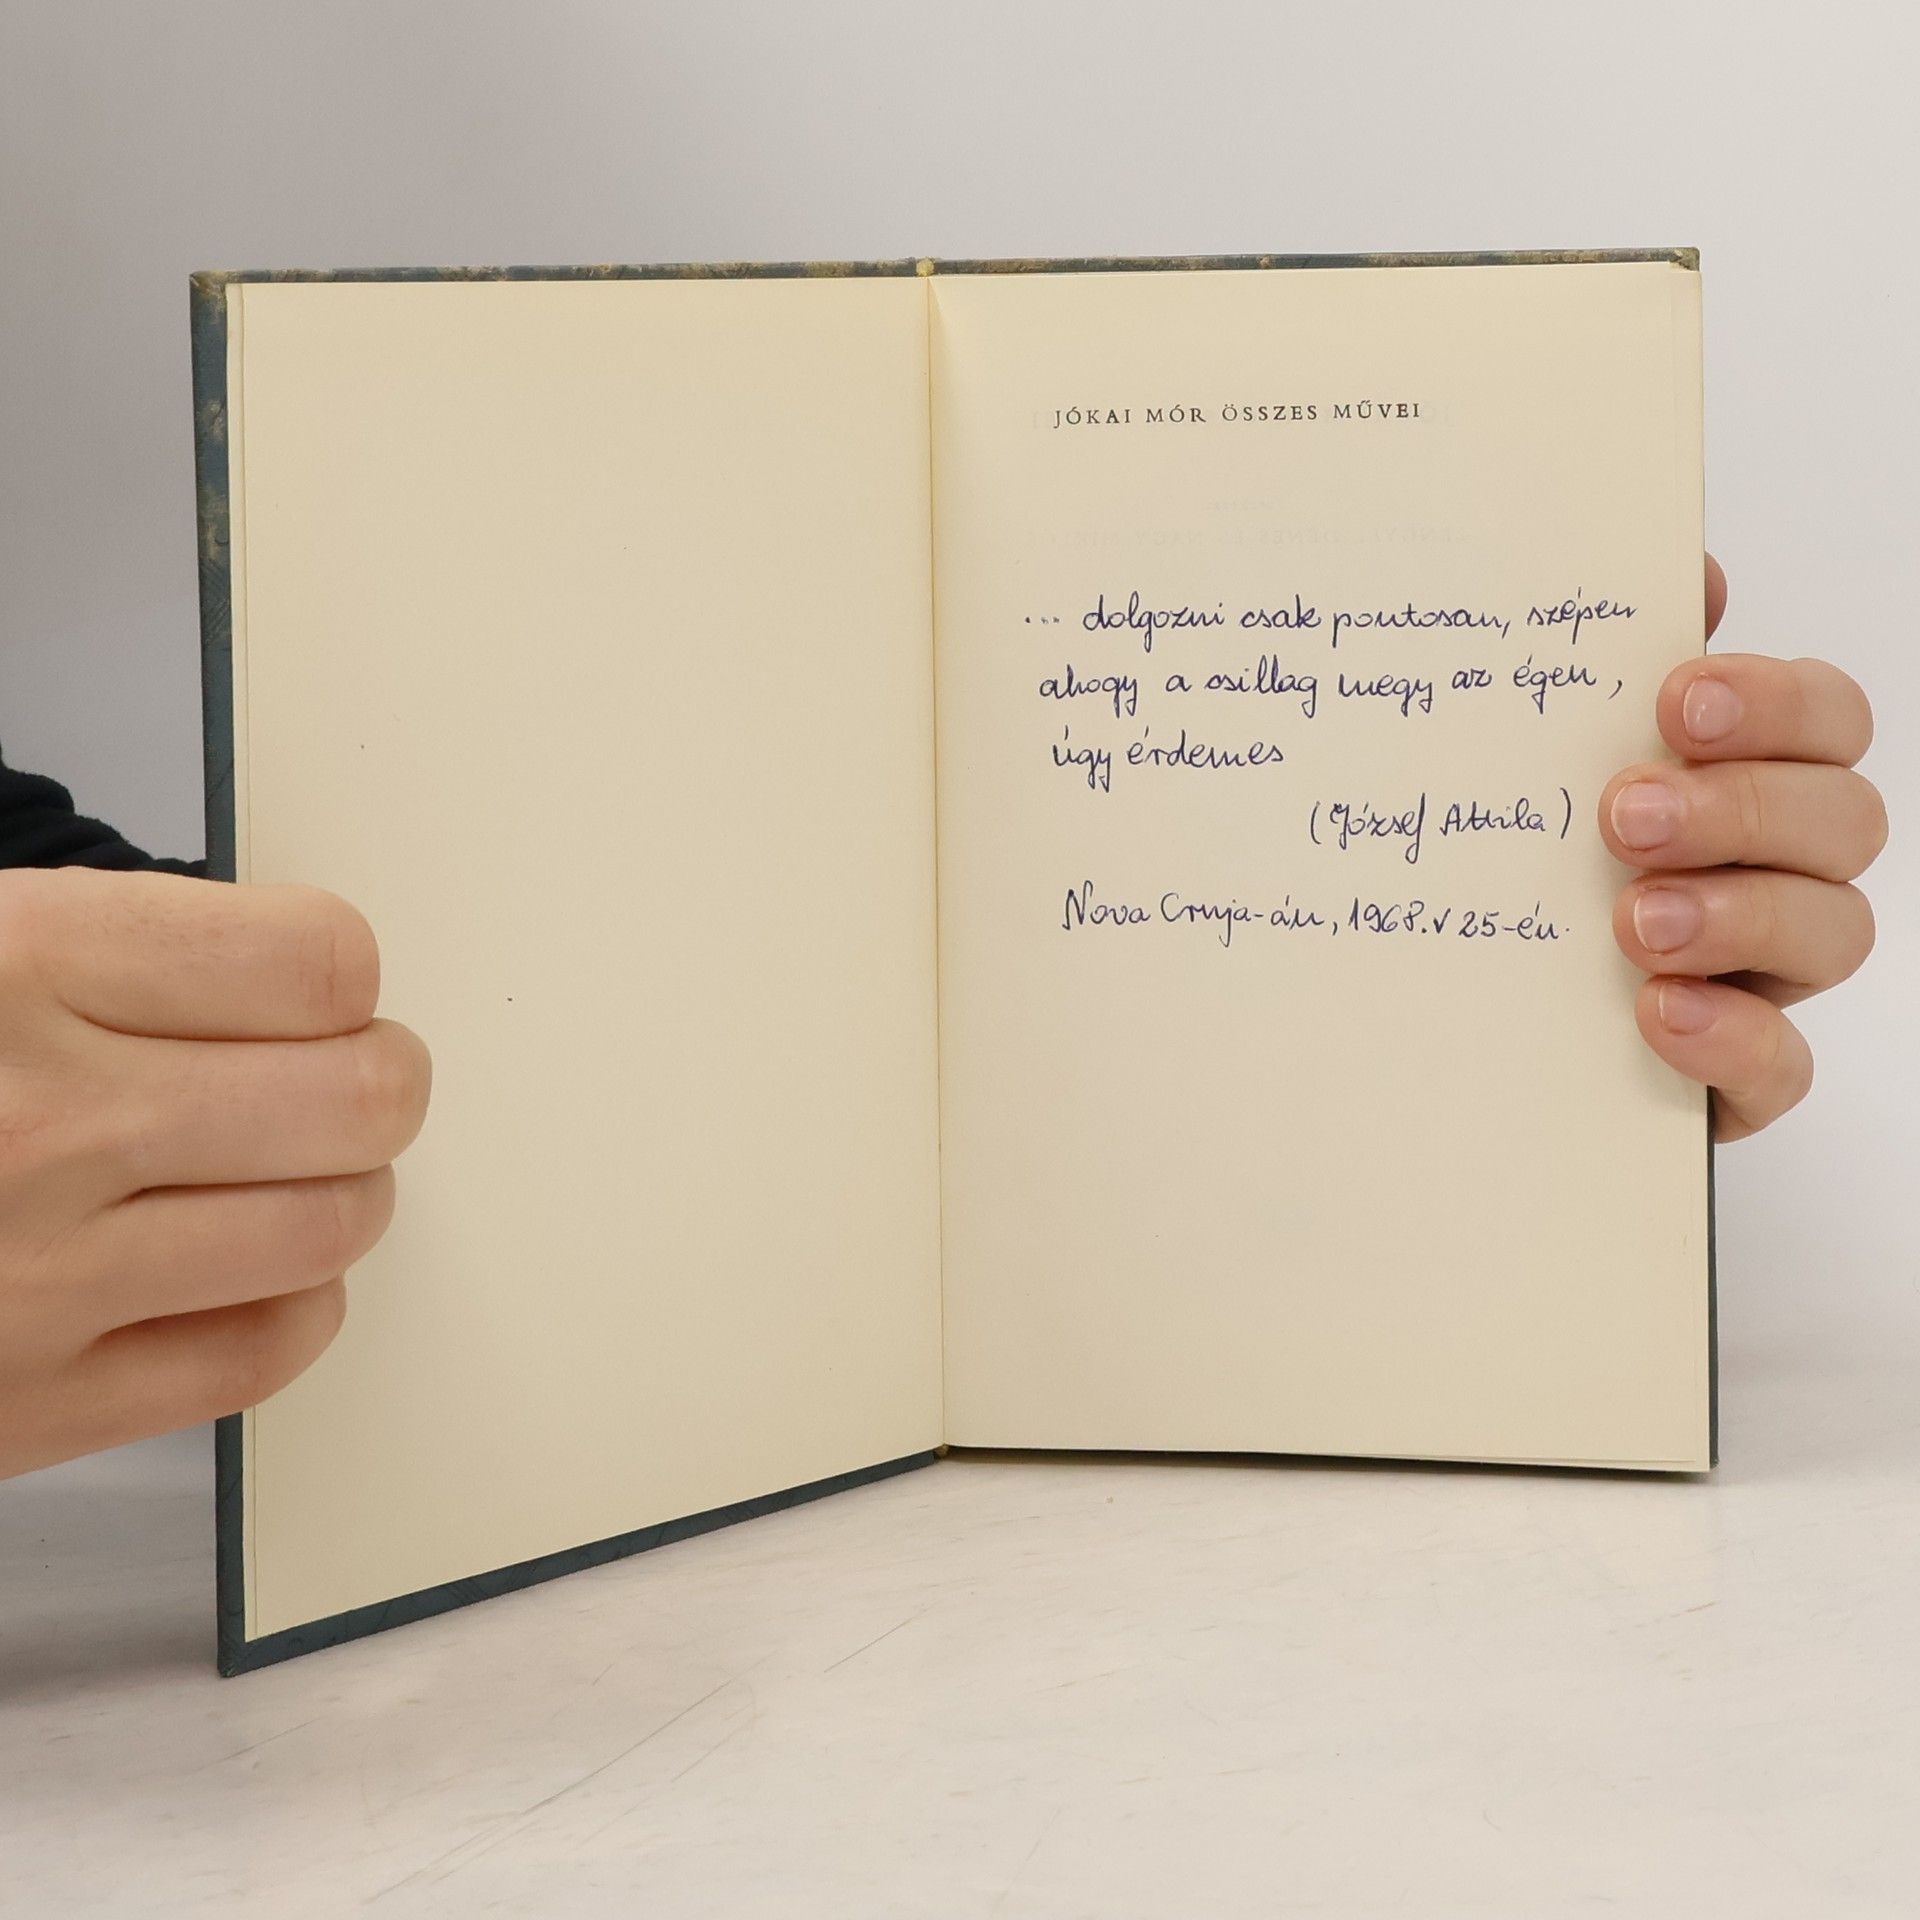 JÓKAI MÓR ÖSSZES MŰVEI
... dolgozni csak pontosan, szépen
ahogy a csillag megy az égen,
úgy érdemes
(József Attila)
Nova Crnja-án, 1968. V 25-én.